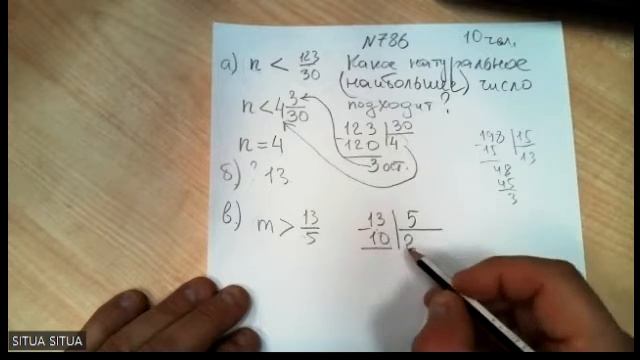 N786
10 чол.
а) n < 123/30
Какое натуральное
(наибольшее) число
подходит?
n < 4 3/30
123 | 30
-120 | 4
3 ост.
n = 4
б) ? 13
198 | 15
-15 | 13
48
45
3
в) m > 13/5
-13 | 5
10 | 2
SITUA SITUA